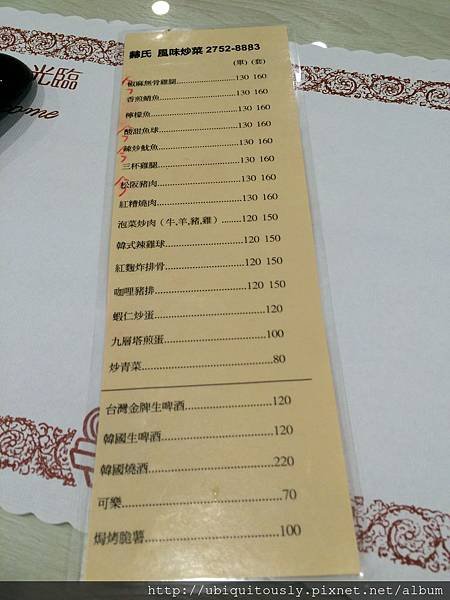 光臨
赫氏 風味炒菜 2752-8883
(單) (套)
椒麻無骨雞腿....................130 160
香煎鯖魚....................130 160
檸檬魚....................130 160
酸甜魚球....................130 160
辣炒魷魚....................130 160
三杯雞腿....................130 160
松阪豬肉....................130 160
紅糟燒肉....................130 160
泡菜炒肉(牛,羊,豬,雞)........120 150
韓式辣雞球....................120 150
紅麴炸排骨....................120 150
咖哩豬排....................120 150
蝦仁炒蛋....................120
九層塔煎蛋....................100
炒青菜....................80
台灣金牌生啤酒....................120
韓國生啤酒....................120
韓國燒酒....................220
可樂....................70
焗烤脆薯....................100
http://ubiquitously.pixnet.net/album